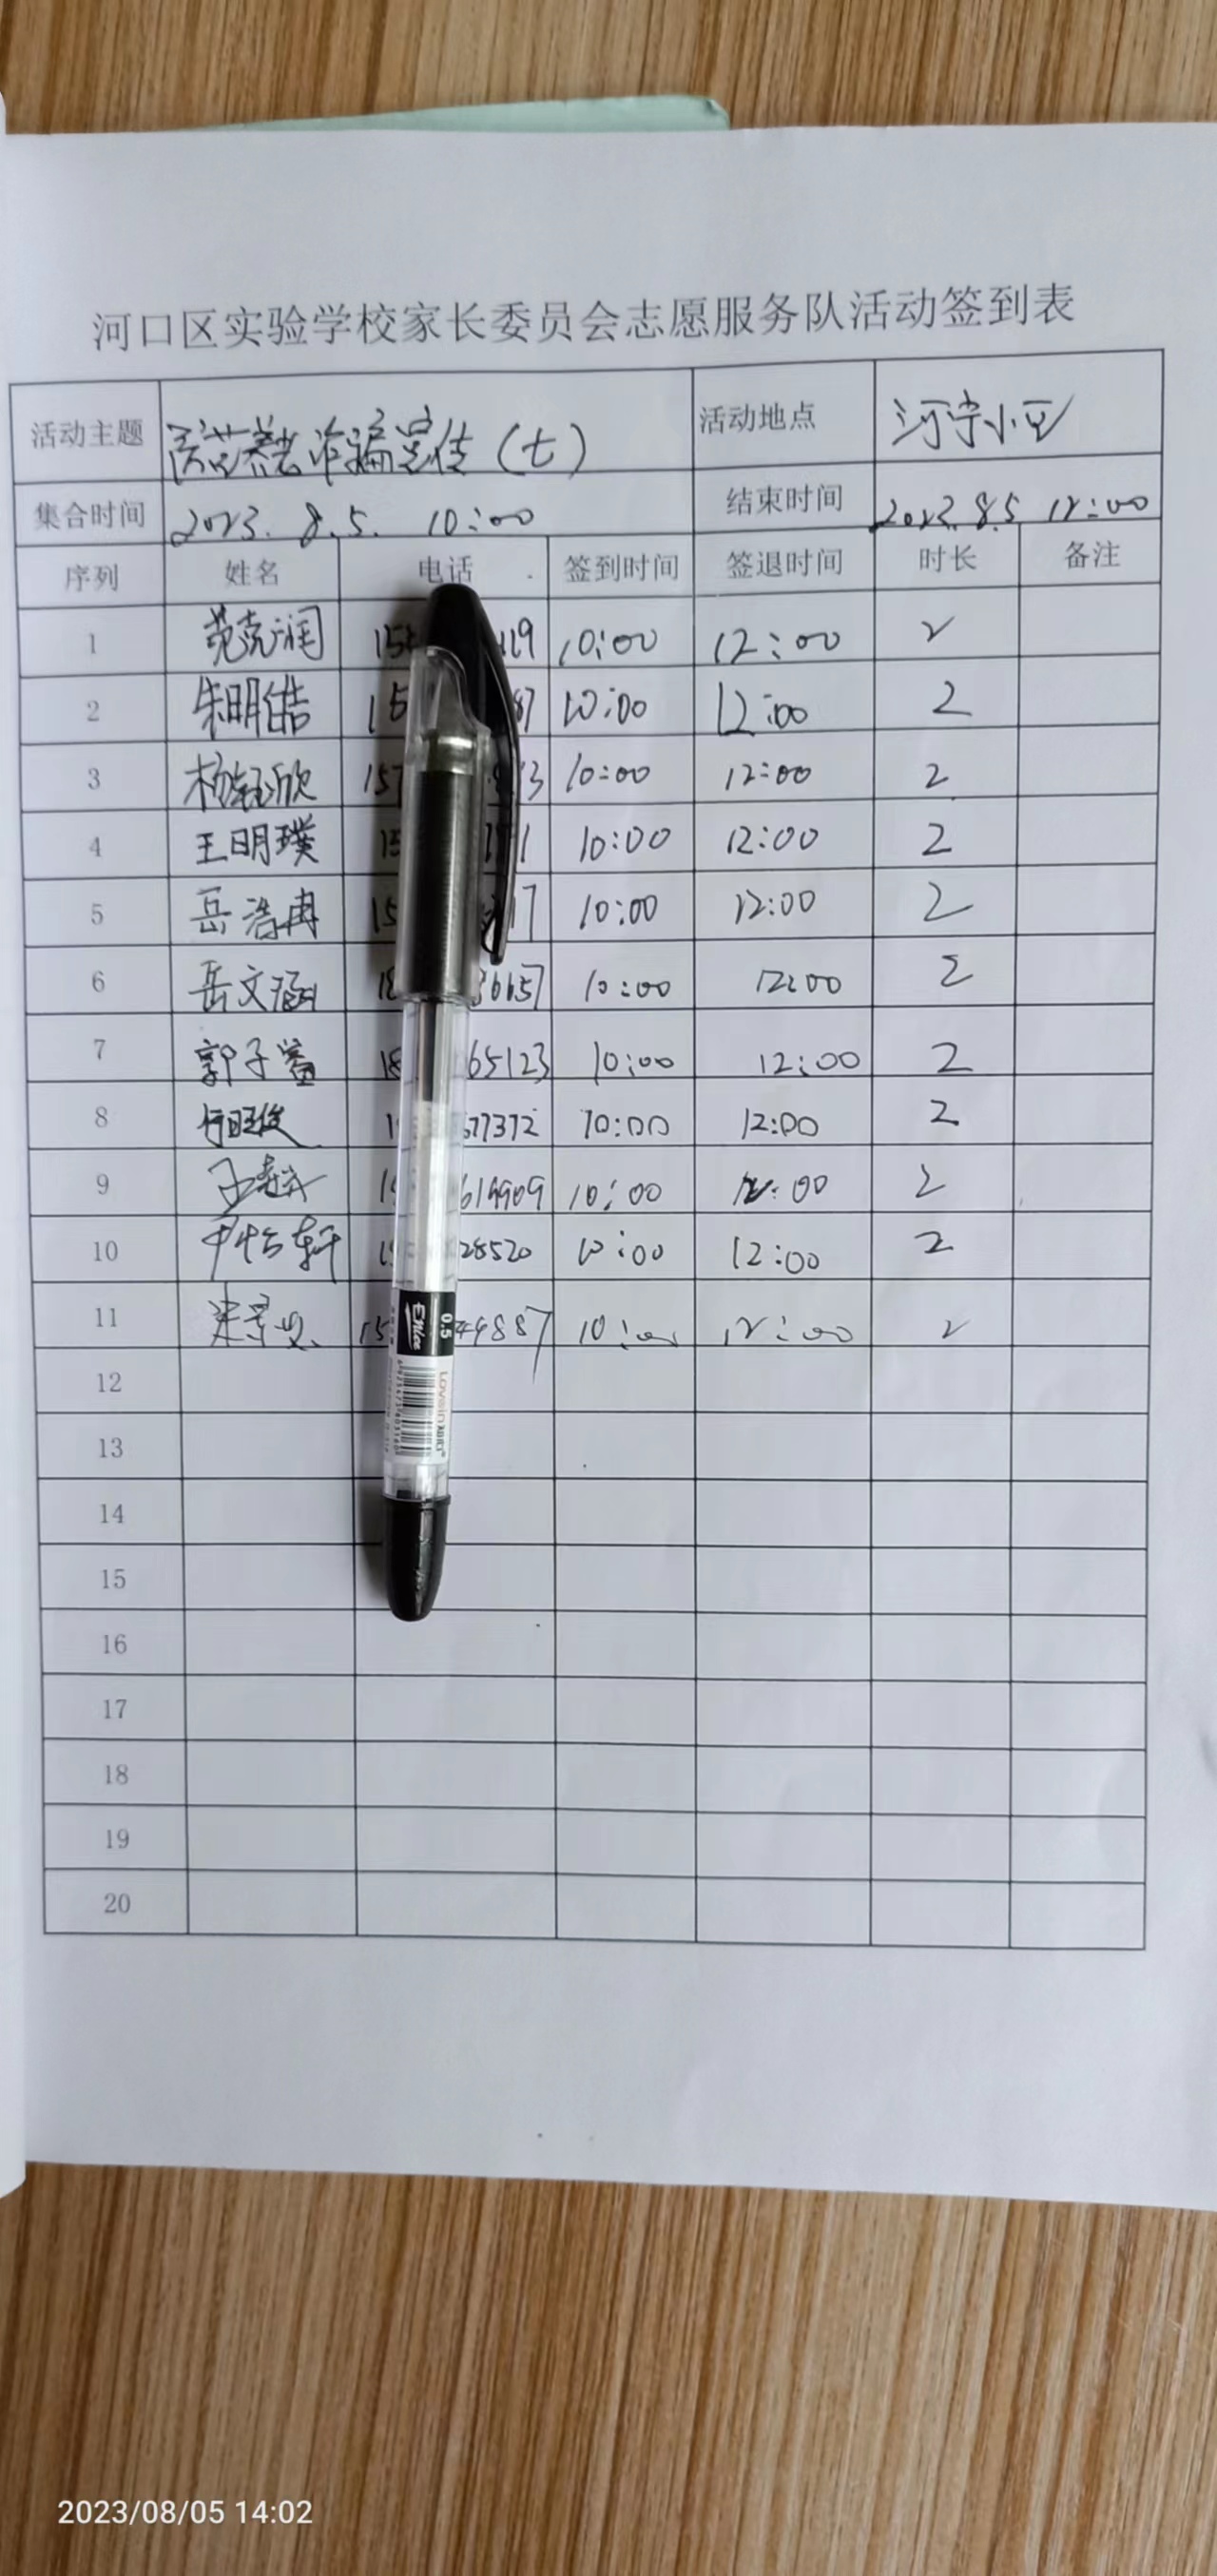 河口区实验学校家长委员会志愿服务队活动签到表
活动主题 防范养老诈骗宣传（七） 活动地点 河宁小区
集合时间 2023.8.5. 10:00 结束时间 2023.8.5 12:00
序列 姓名 电话 签到时间 签退时间 时长 备注
1 范克润 15 119 10:00 12:00 2
2 朱明皓 15 87 10:00 12:00 2
3 杨钰欣 157 3 10:00 12:00 2
4 王明璞 15 1 10:00 12:00 2
5 岳浩冉 15 17 10:00 12:00 2
6 岳文涵 18 6657 10:00 12:00 2
7 郭子 18 65123 10:00 12:00 2
8 1 577372 10:00 12:00 2
9 1 619909 10:00 12:00 2
10 尹怡轩 15 28520 10:00 12:00 2
11 15 49887 10:00 12:00 2
12
13
14
15
16
17
18
19
20
0.5
LOVEIN
2023/08/05 14:02